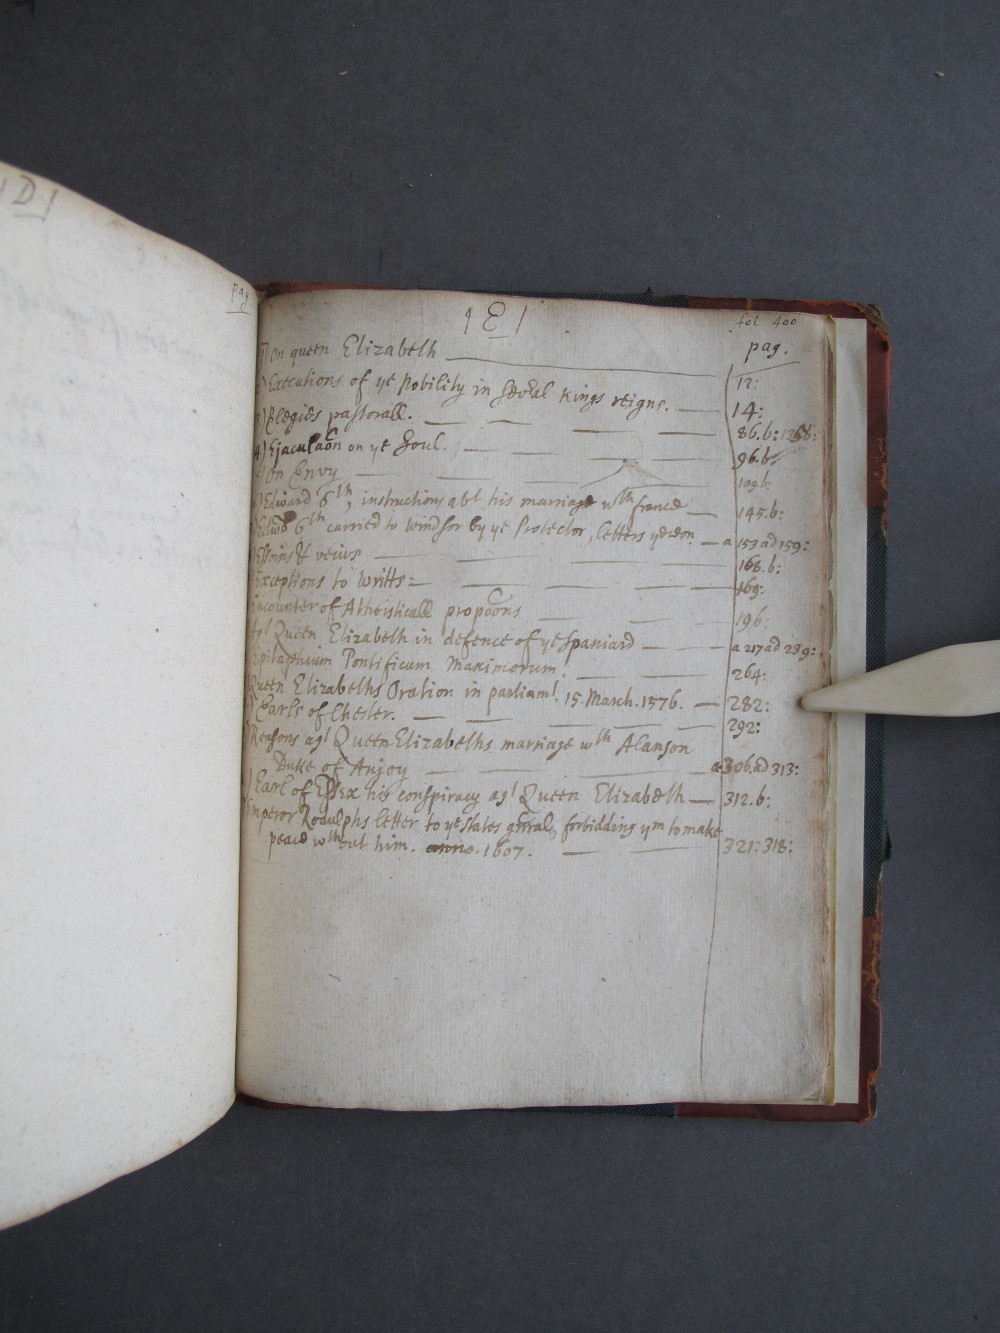 | D |
pag
| E |
fol 400
pag.
1) On queen Elizabeth
12:
) Executions of ye Nobility in seu͠al Kings reigns.
14:
3) Elegies pastorall.
86.b: 1368:
4) Ejaculac͠on on ye Soul.
96.b:
) On Envy
109b:
) Edward 6th, instructions abt his marriage wth france
145.b:
) Edwd 6th carried to windsor by ye Protector, letters yereon.
a 153 ad 159:
) Essoins & veiws
168.b:
Exceptions to writts =
169:
Encounter of Atheisticall propoc͠ons
196:
to Queen Elizabeth in defence of ye Spaniard
a 217 ad 239:
Epitaphium Pontificum Maximorum.
264:
Queen Elizabeths Oration in parliamt. 15. March. 1576.
282:
) Earls of Chester.
292:
) Reasons agt Queen Elizabeths marriage wth Alanson
Duke of Anjoy
a 306. ad 313:
) Earl of Essex his conspiracy agt Queen Elizabeth
312.b:
Emperor Rodulphs letter to ye states gn͠ral, forbidding ym to make
peace wthout him. anno. 1607.
321: 318: